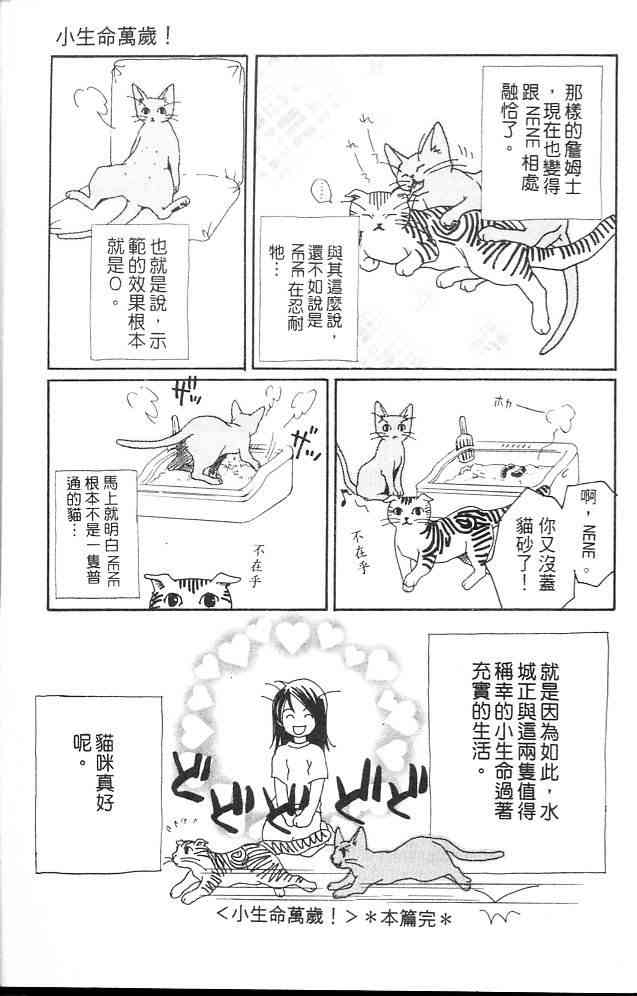 小生命萬歲！
那樣的詹姆士
，現在也變得
跟NENE相處
融恰了。
……
與其這麼說，
還不如說是
NENE在忍耐
牠…
也就是說，示
範的效果根本
就是0。
啊，NENE。
你又沒蓋
貓砂了！
ホカ
不在乎
ザッ
ザッ
馬上就明白NENE
根本不是一隻普
通的貓…
不在乎
就是因為如此，水
城正與這兩隻值得
稱幸的小生命過著
充實的生活。
ドドドドド
貓咪真好
呢。
＜小生命萬歲！＞＊本篇完＊